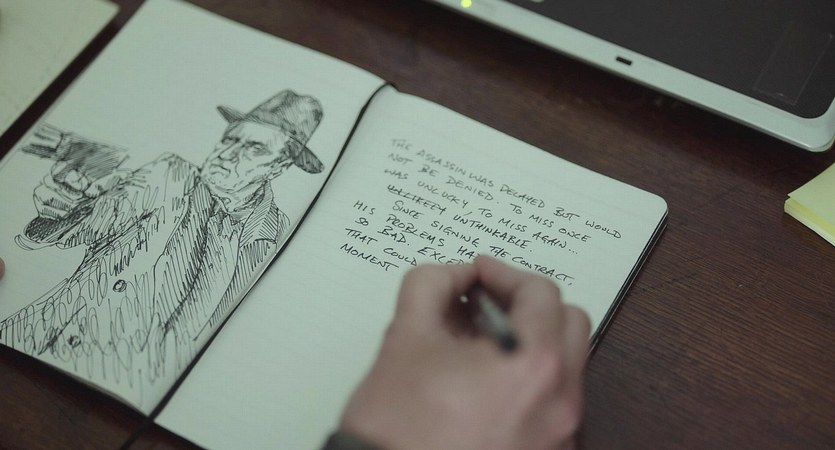 THE ASSASSIN WAS DELAYED BUT WOULD
NOT BE DENIED. TO MISS ONCE
WAS UNLUCKY, TO MISS AGAIN...
UNTHINKABLE.
SINCE SIGNING THE CONTRACT,
HIS PROBLEMS
SO BAD.
THAT COULD
MOMENT